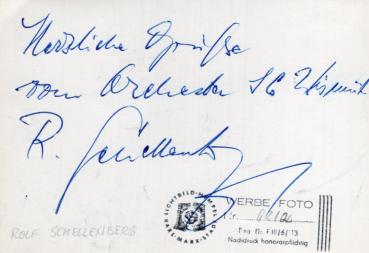 Herzliche Grüße
vom Orchester SG Wismut
R. Schellenb
LICHTBILD-HEMPEL
KARL-MARX-STADT
WERBE-FOTO
Nr.
Reg. Nr. F III/6/ 13
Nachdruck honorarpflichtig
ROLF SCHELLENBERG